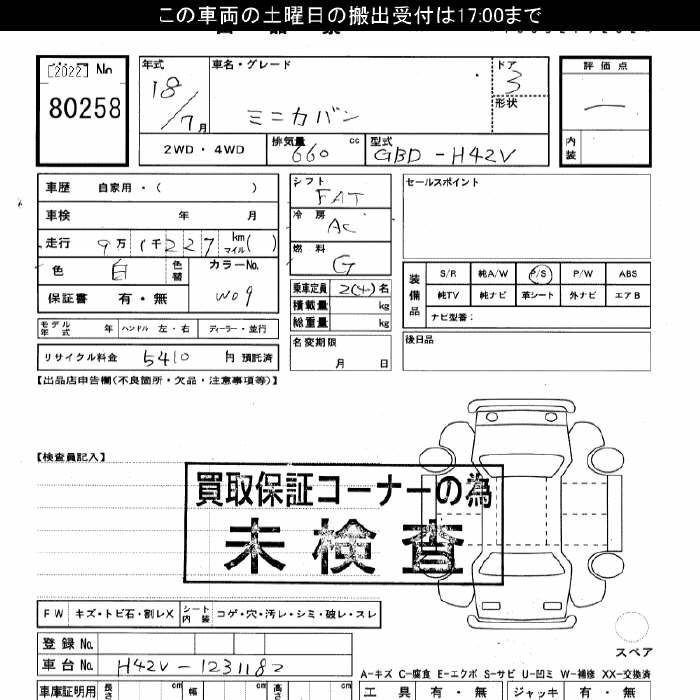 この車両の土曜日の搬出受付は17:00まで
[2022] No
80258
年式
18/7月
車名・グレード
ミニカバン
ドア
3
形状
評価点
一
内装
2WD・4WD
排気量 660 cc
型式 GBD-H42V
車歴 自家用・( )
車検 年 月
走行 9万1千227 km マイル( )
色 白 色替
カラーNo. W09
保証書 有・無
シフト FAT
冷房 AC
燃料 G
乗車定員 2(4)名
積載量 kg
総重量 kg
名変期限 月 日
セールスポイント
装備品
S/R 純A/W P/S P/W ABS
純TV 純ナビ 革シート 外ナビ エアB
ナビ型番:
後日品
モデル年式 年 ハンドル 左・右 ディーラー・並行
リサイクル料金 5410 円 預託済
【出品店申告欄(不良箇所・欠品・注意事項等)】
【検査員記入】
買取保証コーナーの為
未検査
FW キズ・トビ石・割レX シート内装 コゲ・穴・汚レ・シミ・破レ・スレ
登録No.
車台No. H42V-1231182
スペア
A-キズ C-腐食 E-エクボ S-サビ U-凹ミ W-補修 XX-交換済
車庫証明用 長さ cm 幅 cm 高さ cm
工具 有・無 ジャッキ 有・無